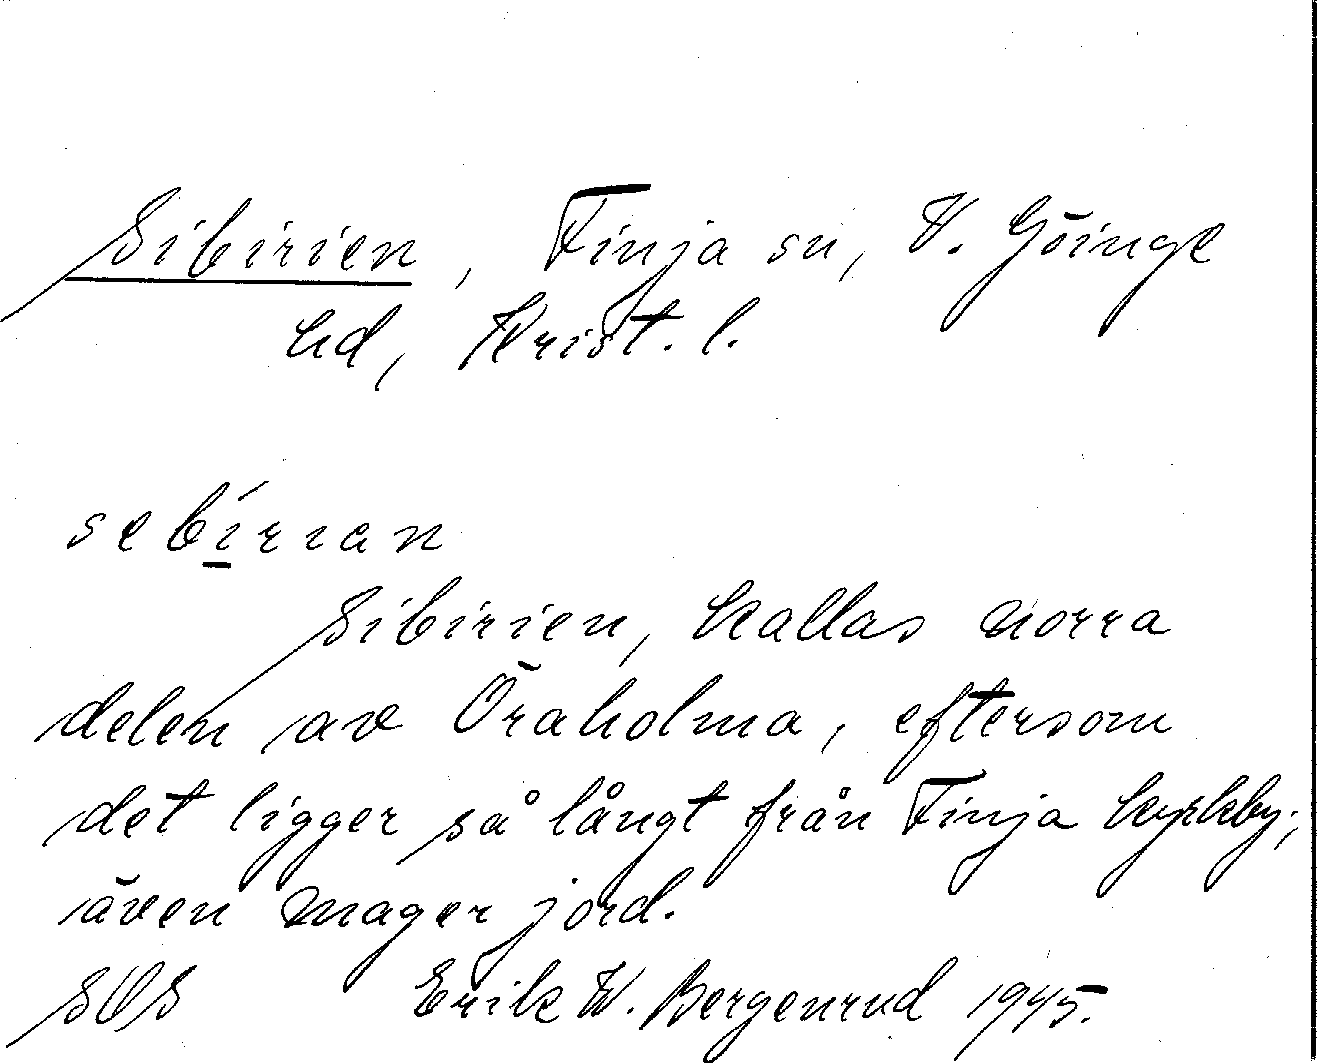 Sibirien, Finja sn, V. Göinge
hd, Krist. l.
sebírian
Sibirien, kallas norra
delen av Öraholma, eftersom
det ligger så långt från Finja kyrkby;
även mager jord.
SOS Erik W. Bergenrud 1945.